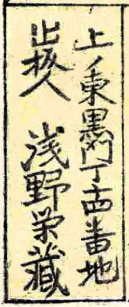 上ノ東黒門丁古番地
出板人 浅野栄蔵